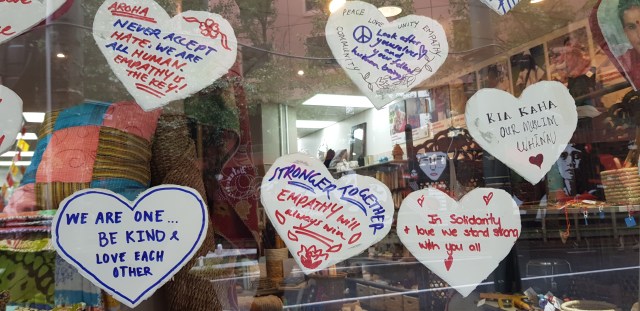 AROHA
NEVER ACCEPT
HATE. WE ARE
ALL HUMAN.
EMPATHY IS
THE KEY!
PEACE LOVE UNITY EMPATHY
COMMUNITY
Look after
yourselves
and your fellow
human beings
KIA KAHA
OUR MUSLIM
WHĀNAU
WE ARE ONE...
BE KIND &
LOVE EACH
OTHER
STRONGER TOGETHER
EMPATHY will
always win
In Solidarity
+ love we stand strong
with you all